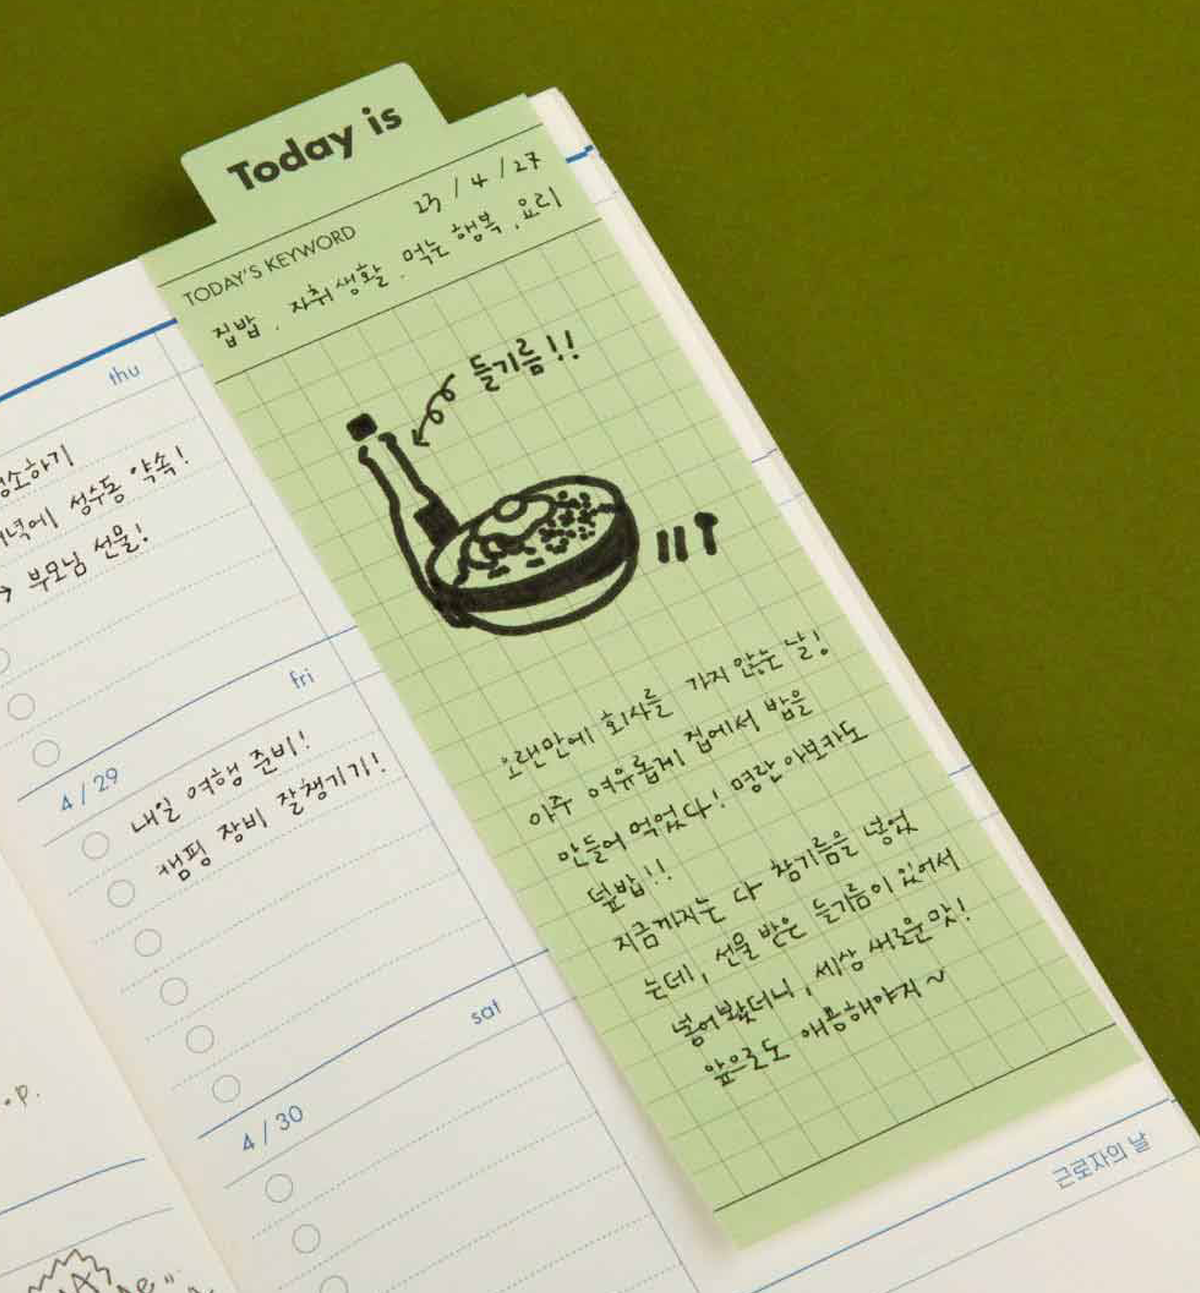 Today is
23 / 4 / 27
TODAY'S KEYWORD
집밥 . 자취생활 . 먹는 행복 . 요리
들기름!!
오랜만에 회사를 가지 않는 날!
아주 여유롭게 집에서 밥을
만들어 먹었다! 명란 아보카도
덮밥!!
지금까지는 다 참기름을 넣었
는데, 선물 받은 들기름이 있어서
넣어봤더니, 세상 새로운 맛!
앞으로도 애용해야지~
thu
청소하기
저녁에 성수동 약속!
→ 부모님 선물!
fri
4 / 29
내일 여행 준비!
캠핑 장비 잘챙기기!
sat
4 / 30
근로자의 날